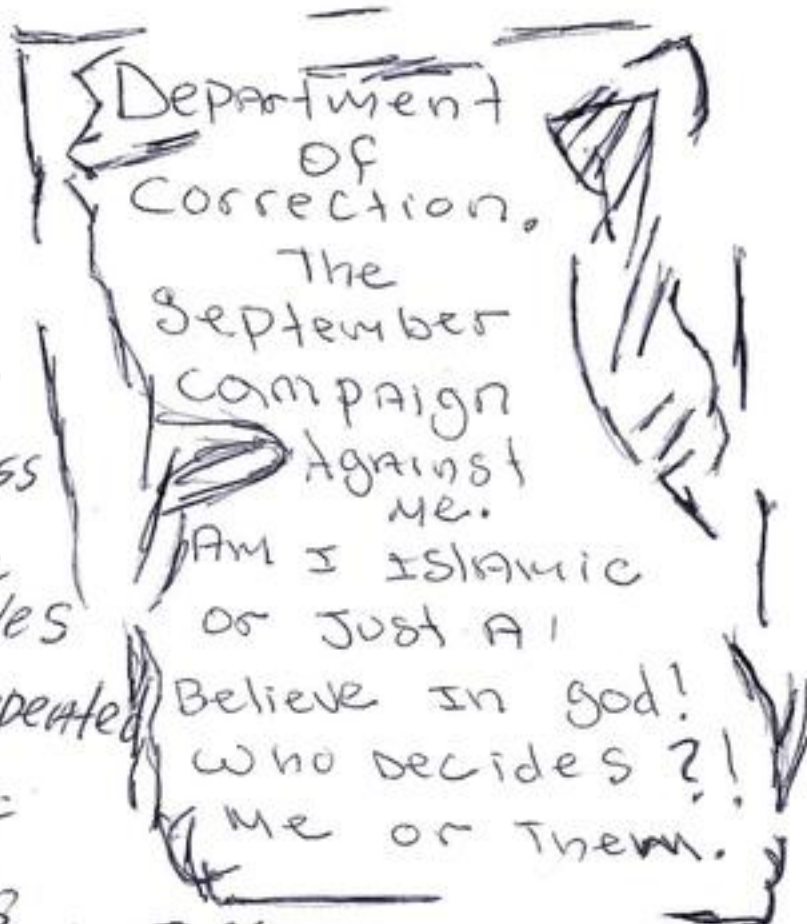 Department
Of
Correction.
The
September
Campaign
Against
Me.
Am I Islamic
or Just A!
Believe In god!
Who Decides?!
Me or Them.